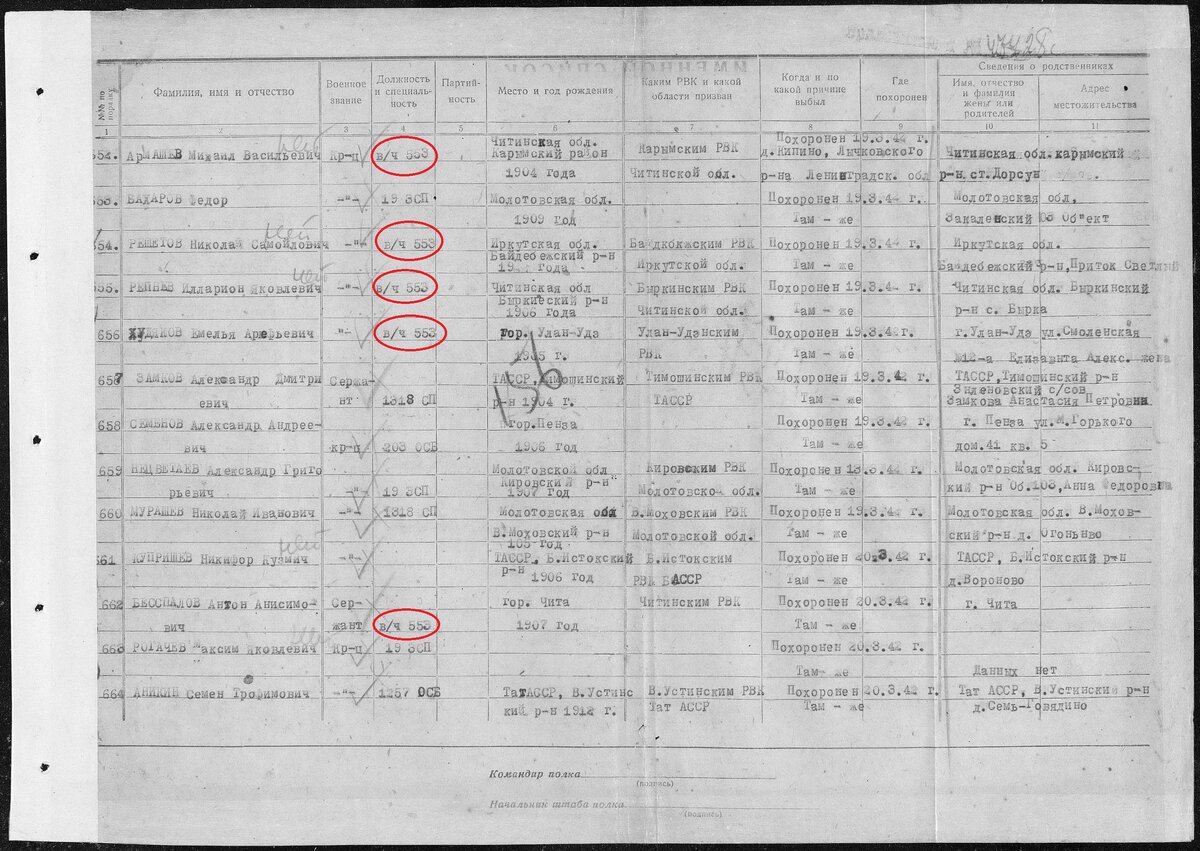 Сведения о родственниках
№№ по порядку Фамилия, имя и отчество Военное звание Должность и специальность Партийность Место и год рождения Каким РВК и какой области призван Когда и по какой причине выбыл Где похоронен Имя, отчество и фамилия жены или родителей Адрес местожительства
1 2 3 4 5 6 7 8 9 10 11
Читинская обл. Похоронен 19.3.42 г.
АрМАШЕВ Михаил Васильевич Кр-ц в/ч 553 Карымский район Карымским РВК д.Кипино, Лычковского Читинская обл.карымский
1904 года Читинской обл. р-на Ленинградск. обл р-н.ст.Дорсун
ВАХАРОВ Федор -"- 19 ЗСП Молотовская обл. Похоронен 19.3.42 г. Молотовская обл,
1909 год Там - же Закаленский 03 Об"ект
654. РЕШЕТОВ Николай Самойлович -"- в/ч 553 Иркутская обл. Байдкбжким РВК Похоронен 19.3.42 г. Иркутская обл.
Байдебежский р-н Иркутской обл. Там - же Байдебежский р-н,Приток Светлый
655. РЕПЬЕВ Илларион Яковлевич -"- в/ч 553 Читинская обл Быркинским РВК Похоронен 19.3.42 г. Читинская обл. Быркинский
Быркиеский р-н
1906 года Читинской обл. Там - же р-н с. Бырка
656 ХУДЯКОВ Емелья Арефьевич -"- в/ч 553 гор. Улан-Удэ Улан-Удэнским Похоронен 19.3.42г. г.Улан-Удэ ул.Смоленская
1905 г. РВК Там - же №12-а Елизавнта Алекс. жена
657 ЗАМКОВ Александр Дмитри Сержа- ТАССР,Тимошинский Тимошинским РВК Похоронен 19.3.42 г. ТАССР,Тимошинский р-н
Зиленовский с/сов
евич нт 1318 СП р-н 1904 г. ТАССР Там - же Замкова Анастасия Петровна
658 СЕМЕНОВ Александр Андрее- гор.Пенза Похоронен 19.3.42 г. г. Пенза ул.М.Горького
вич кр-ц 203 ОСБ 1906 год Там - же дом.41 кв. 5
659 НЕЦВЕЧАЕВ Александр Григо Молотовская обл Кировским РВК Похоронен Молотовская обл. Кировс-
Кировский р-н
рьевич -"- 19 ЗСП 1907 год Молотовской обл. Там - же кий р-н Об.103,Анна Федоровна
660 МУРАШЕВ Николай Иванович -"- 1318 СП Молотовская обл В.Моховским РВК Похоронен 19.3.42 г. Молотовская обл. В.Мохов-
В.Моховский р-н Молотовской обл. Там - же ский р-н.д. Огоньиво
661 КУПРИШЕВ Никифор Кузмич -"- ТАССР, Б.Истокский Б.Истокским Похоронен 20.3.42 г. ТАССР, Б.Истокский р-н
р-н 1906 год Там - же д.Вороново
662 БЕССПАЛОВ Антон Анисимо- Сер- гор. Чита Читинским РВК Похоронен 20.3.42 г. г. Чита
вич жант в/ч 553 1907 год Там - же
663 РОГАЧЕВ Максим Яковлевич Кр-ц 19 ЗСП Похоронен 20.3.42 г.
Там - же Данных нет
664 АНИКИН Семен Трофимович -"- 1257 ОСБ ТатАССР, В.Устинс В.Устинским РВК Похоронен 20.3.42 г. Тат АССР, В.Устинский р-н
кий р-н 1912 г. Тат АССР Там - же д.Семь-Говядино
156
Командир полка
(подпись)
Начальник штаба полка
(подпись)